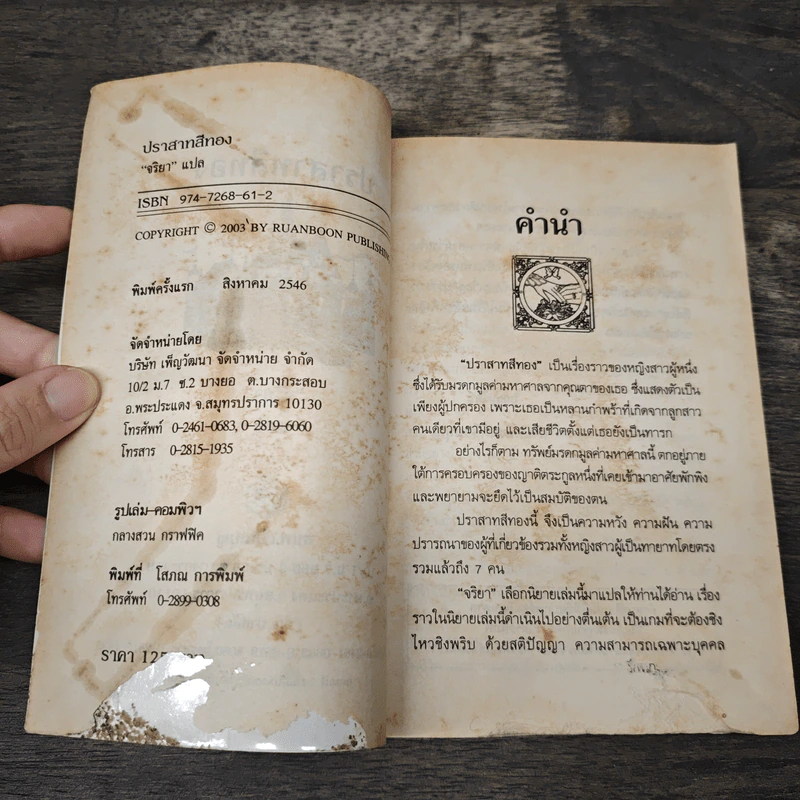 ปราสาทสีทอง
"จริยา" แปล
ISBN 974-7268-61-2
COPYRIGHT © 2003 BY RUANBOON PUBLISHING
พิมพ์ครั้งแรก สิงหาคม 2546
จัดจำหน่ายโดย
บริษัท เพ็ญวัฒนา จัดจำหน่าย จำกัด
10/2 ม.7 ซ.2 บางยอ ต.บางกระสอบ
อ.พระประแดง จ.สมุทรปราการ 10130
โทรศัพท์ 0-2461-0683, 0-2819-6060
โทรสาร 0-2815-1935
รูปเล่ม-คอมพิวฯ
กลางสวน กราฟฟิค
พิมพ์ที่ โสภณ การพิมพ์
โทรศัพท์ 0-2899-0308
ราคา 125
คำนำ
"ปราสาทสีทอง" เป็นเรื่องราวของหญิงสาวผู้หนึ่ง
ซึ่งได้รับมรดกมูลค่ามหาศาลจากคุณตาของเธอ ซึ่งแสดงตัวเป็น
เพียงผู้ปกครอง เพราะเธอเป็นหลานกำพร้าที่เกิดจากลูกสาว
คนเดียวที่เขามีอยู่ และเสียชีวิตตั้งแต่เธอยังเป็นทารก
อย่างไรก็ตาม ทรัพย์มรดกมูลค่ามหาศาลนี้ ตกอยู่ภาย
ใต้การครอบครองของญาติตระกูลหนึ่งที่เคยเข้ามาอาศัยพักพิง
และพยายามจะยึดไว้เป็นสมบัติของตน
ปราสาทสีทองนี้ จึงเป็นความหวัง ความฝัน ความ
ปรารถนาของผู้ที่เกี่ยวข้องรวมทั้งหญิงสาวผู้เป็นทายาทโดยตรง
รวมแล้วถึง 7 คน
"จริยา" เลือกนิยายเล่มนี้มาแปลให้ท่านได้อ่าน เรื่อง
ราวในนิยายเล่มนี้ดำเนินไปอย่างตื่นเต้น เป็นเกมที่จะต้องชิง
ไหวชิงพริบ ด้วยสติปัญญา ความสามารถเฉพาะบุคคล